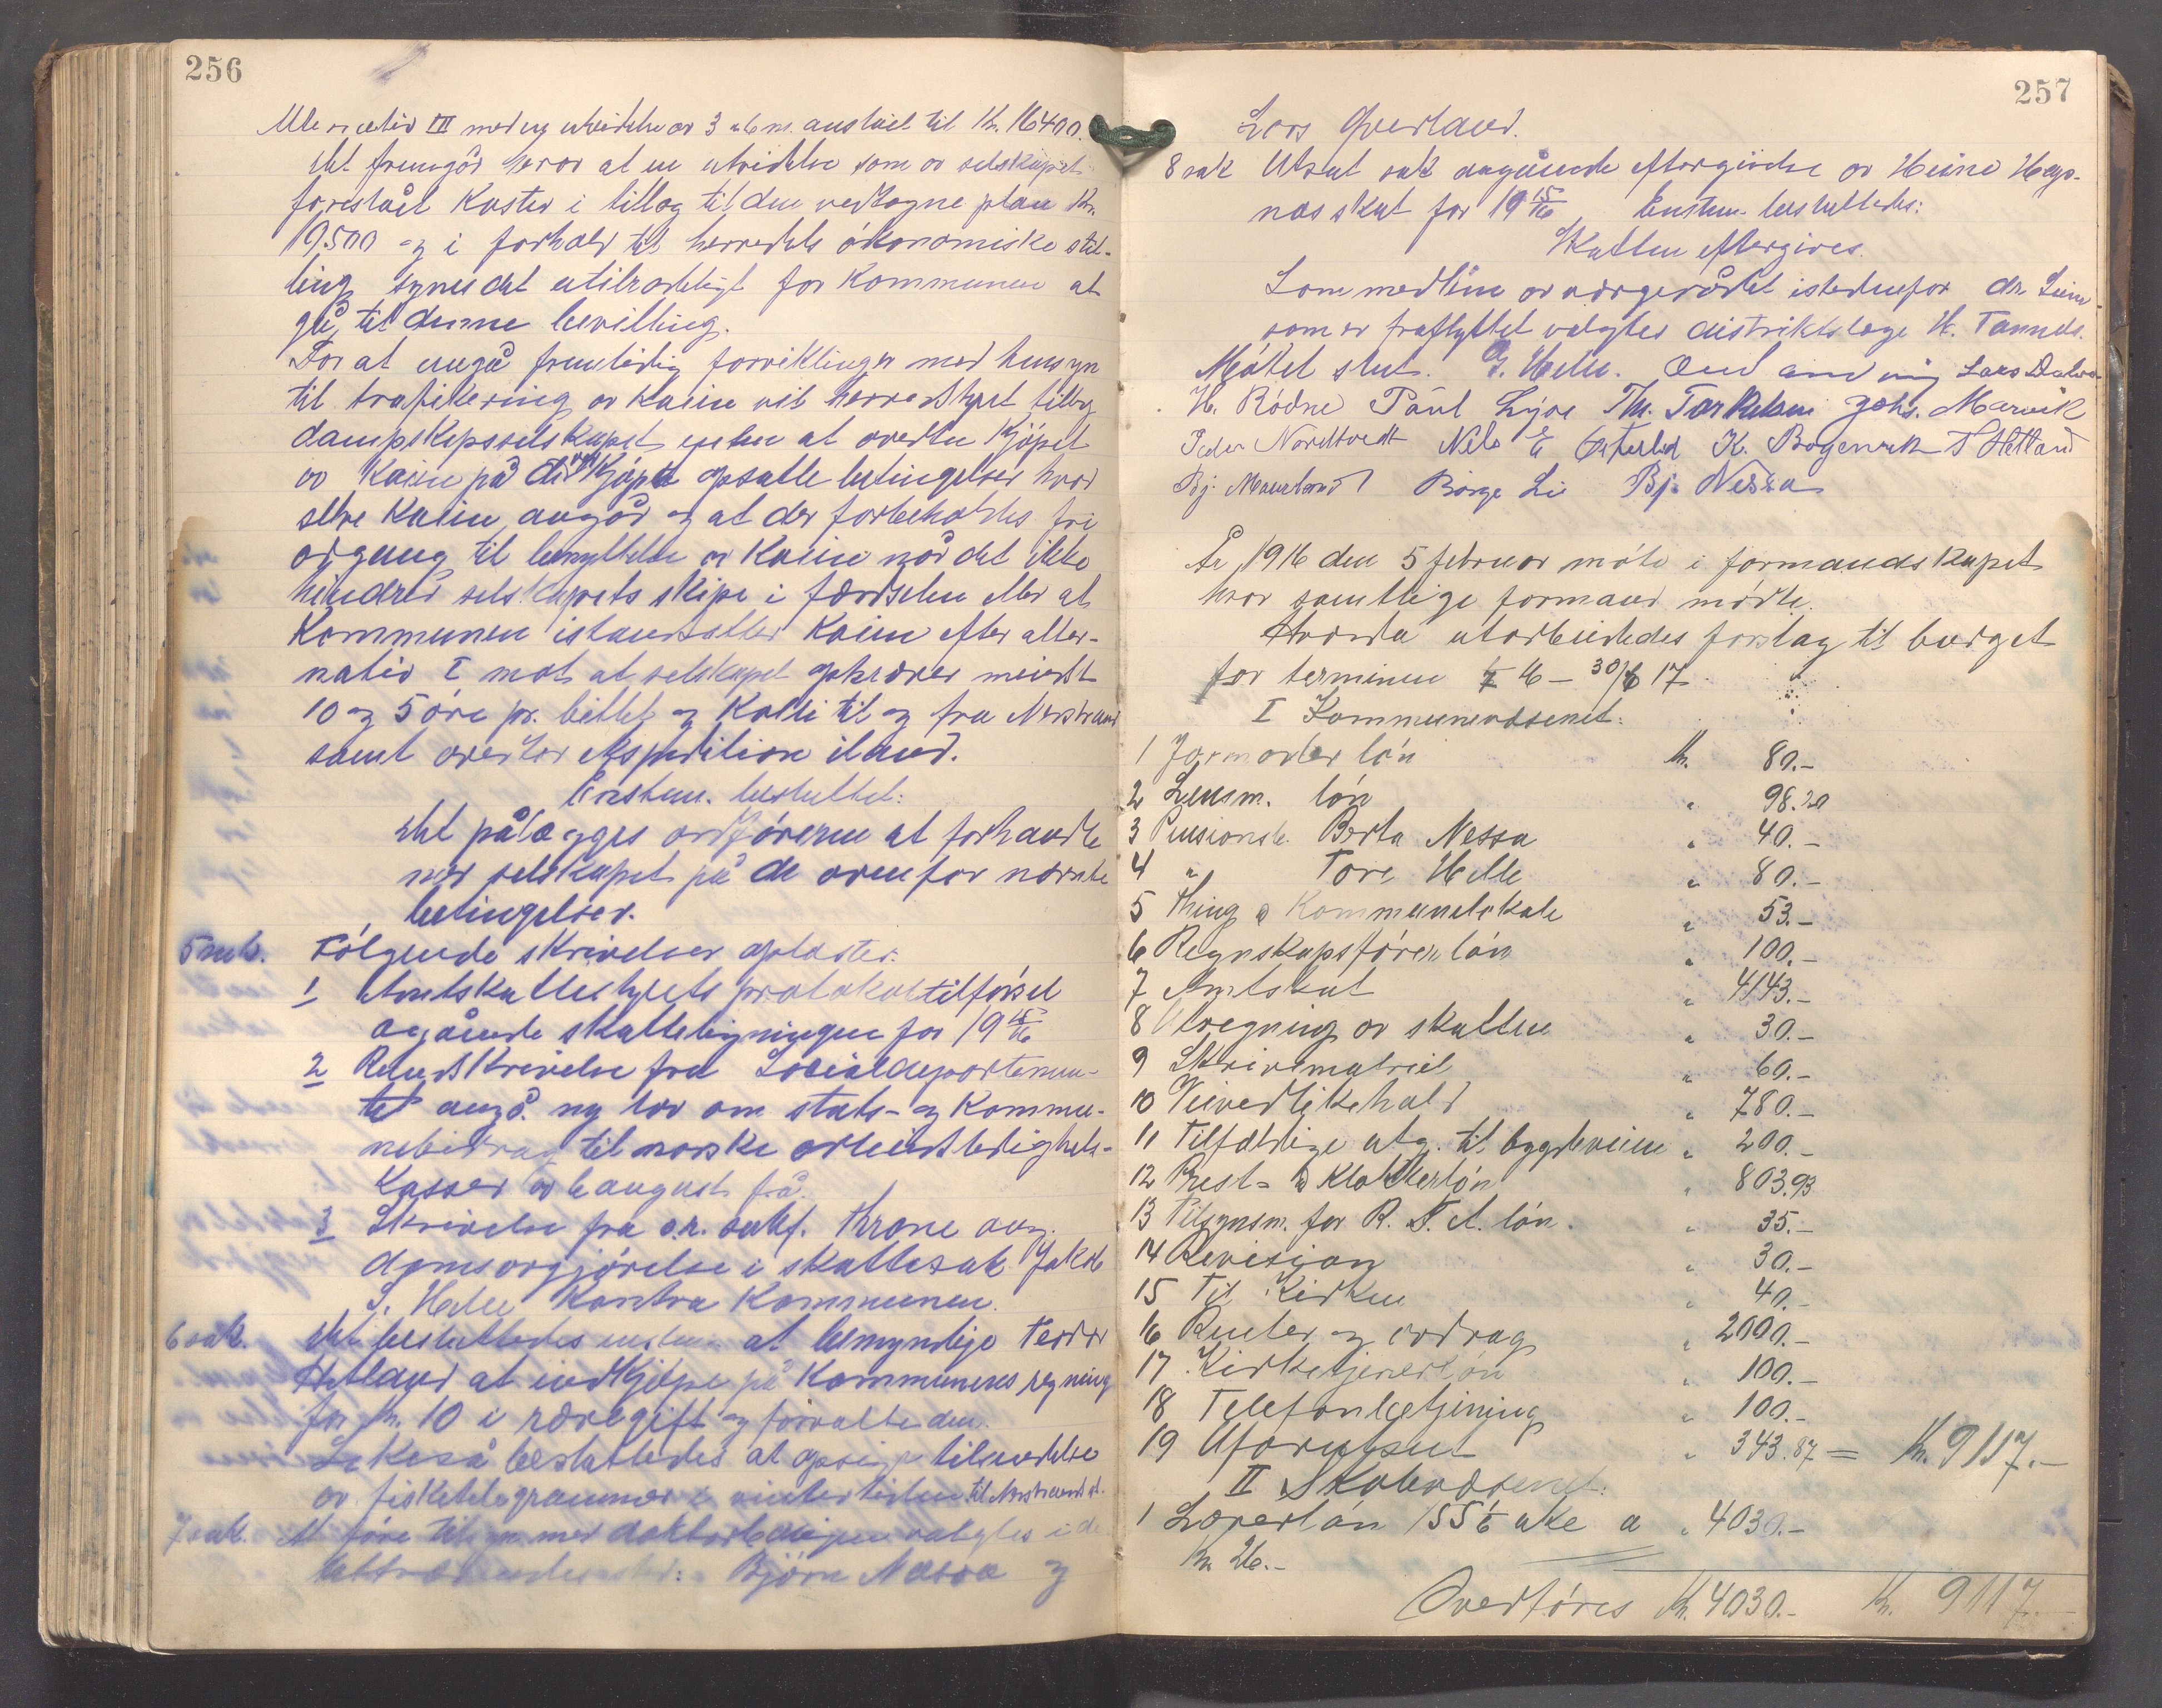 256
Alternativ III med ny utvidelse av 3 alen. anslaat til Kr. 16400.
Det fremgår herav at en utvidelse som av selskapet
foreslået koster i tillæg til den vedtagne plan Kr.
19500 og i forhold til herredets økonomiske stil-
ling synes det utilraadeligt for kommunen at
gå til denne bevilling.
For at undgå fremtidig forviklinger med hensyn
til trafikering av kaien vil herredstyret tilby
dampskipsselskapet enten at overta kjøpet
av kaien på de ved kjøpet opsatte betingelser hvad
selve kaien angår og at der forbeholdes fri
adgang til benyttelse av kaien når det ikke
hindrer selskapets skipe i færdselen eller at
Kommunen istandsætter kaien efter alter-
nativ I mot at selskapet opkræver
10 og 5 øre pr. billet og kolli til og fra Nerstrand
samt overtar ekspedition iland.
Enstem. besluttet:
Det pålægges ordføreren at forhandle
med selskapet på de ovenfor nævnte
betingelser.
5 sak. Følgende skrivelser oplæstes:
1 Amtskattestyrets protokoltilførsel
angående skatteligningen for 19 15/16
2 Rundskrivelse fra Socialdepartemen-
tet angå. ny lov om stats- og kommu-
nebidrag til norske arbeidsledighets-
kasser av 6 august f.å.
3 Skrivelse fra o.r. sakf. Krone ang.
domsavgjørelse i skattesak Jakob
S. Helle kontra Kommunen.
6 sak. Det besluttedes enstem. at bemyndige Teodor
Hetland at indkjøpe på kommunens regning
for Kr. 10 i rævegift og forvalte den.
Likeså besluttedes at opsige tilmeldelse
av fisketelegrammer i vintertiden til Nerstrand st.
7 sak. At føre tilsyn med doktorboligen valgtes i de
Bjørn Nessa og
257
Lars Overland.
8 sak Utsat sak angående eftergivelse av Heine Høye-
nes skat for 19 15/16, Enstem. besluttedes:
Skatten eftergives.
Som medlem av værgerådet istedenfor dr.
som er fraflyttet valgtes distriktslæge H. Tannds.
Møtet slut. G. Helle. Lars Dalva
H. Rødne Paul Lyse Th. Torkelsen Johs. Marvik
Peder Nordtvedt Nels E Østerhed K. Bogenvik T Hetland
Bj. Mæuland Børge Li Bj. Nessa
År 1916 den 5 februar møte i formandskapet
hvor samtlige formænd mødte.
Hvorda utarbeidedes forslag til budget
for terminen 1/7 16 – 30/6 17
I Kommunevæsenet:
1 Jormoderløn Kr. 80.–
2 Lensm. løn " 98.20
3 Pensionsb. Berta Nessa " 40.–
4 " Tore Helle " 80.–
5 Thing & Kommunelokale " 53.–
6 Regnskapsførerløn " 100.–
7 Amtskat " 4143.–
8 Utregning av skatten " 30.–
9 Skrivematriel " 60.–
10 Veivedlikehold " 780.–
11 Tilfældige utg. til bygdeveiene " 200.–
12 Prest- & Klokkerløn " 803.93
13 Tilsynsm. for R. T. A. løn. " 35.–
14 Revision " 30.–
15 Til Kirken " 40.–
16 Renter og avdrag " 2000.–
17 Kirketjenerløn " 100.–
18 Telefonbetjening " 100.–
19 Uforutset " 343.87 = Kr. 9117.–
II Skolevæsenet:
1 Lærerløn 155 uke a " 4030.–
Kr 26.–
Overføres Kr. 4030.– Kr. 9117.–